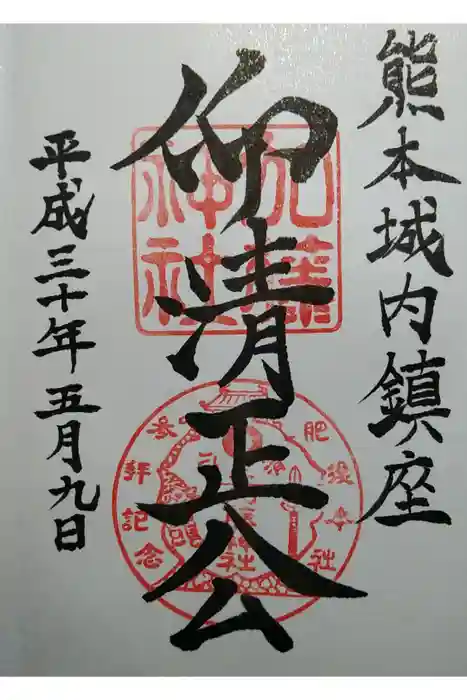 熊本城内鎮座
仰清正公
平成三十年五月九日
加藤神社
参拝記念